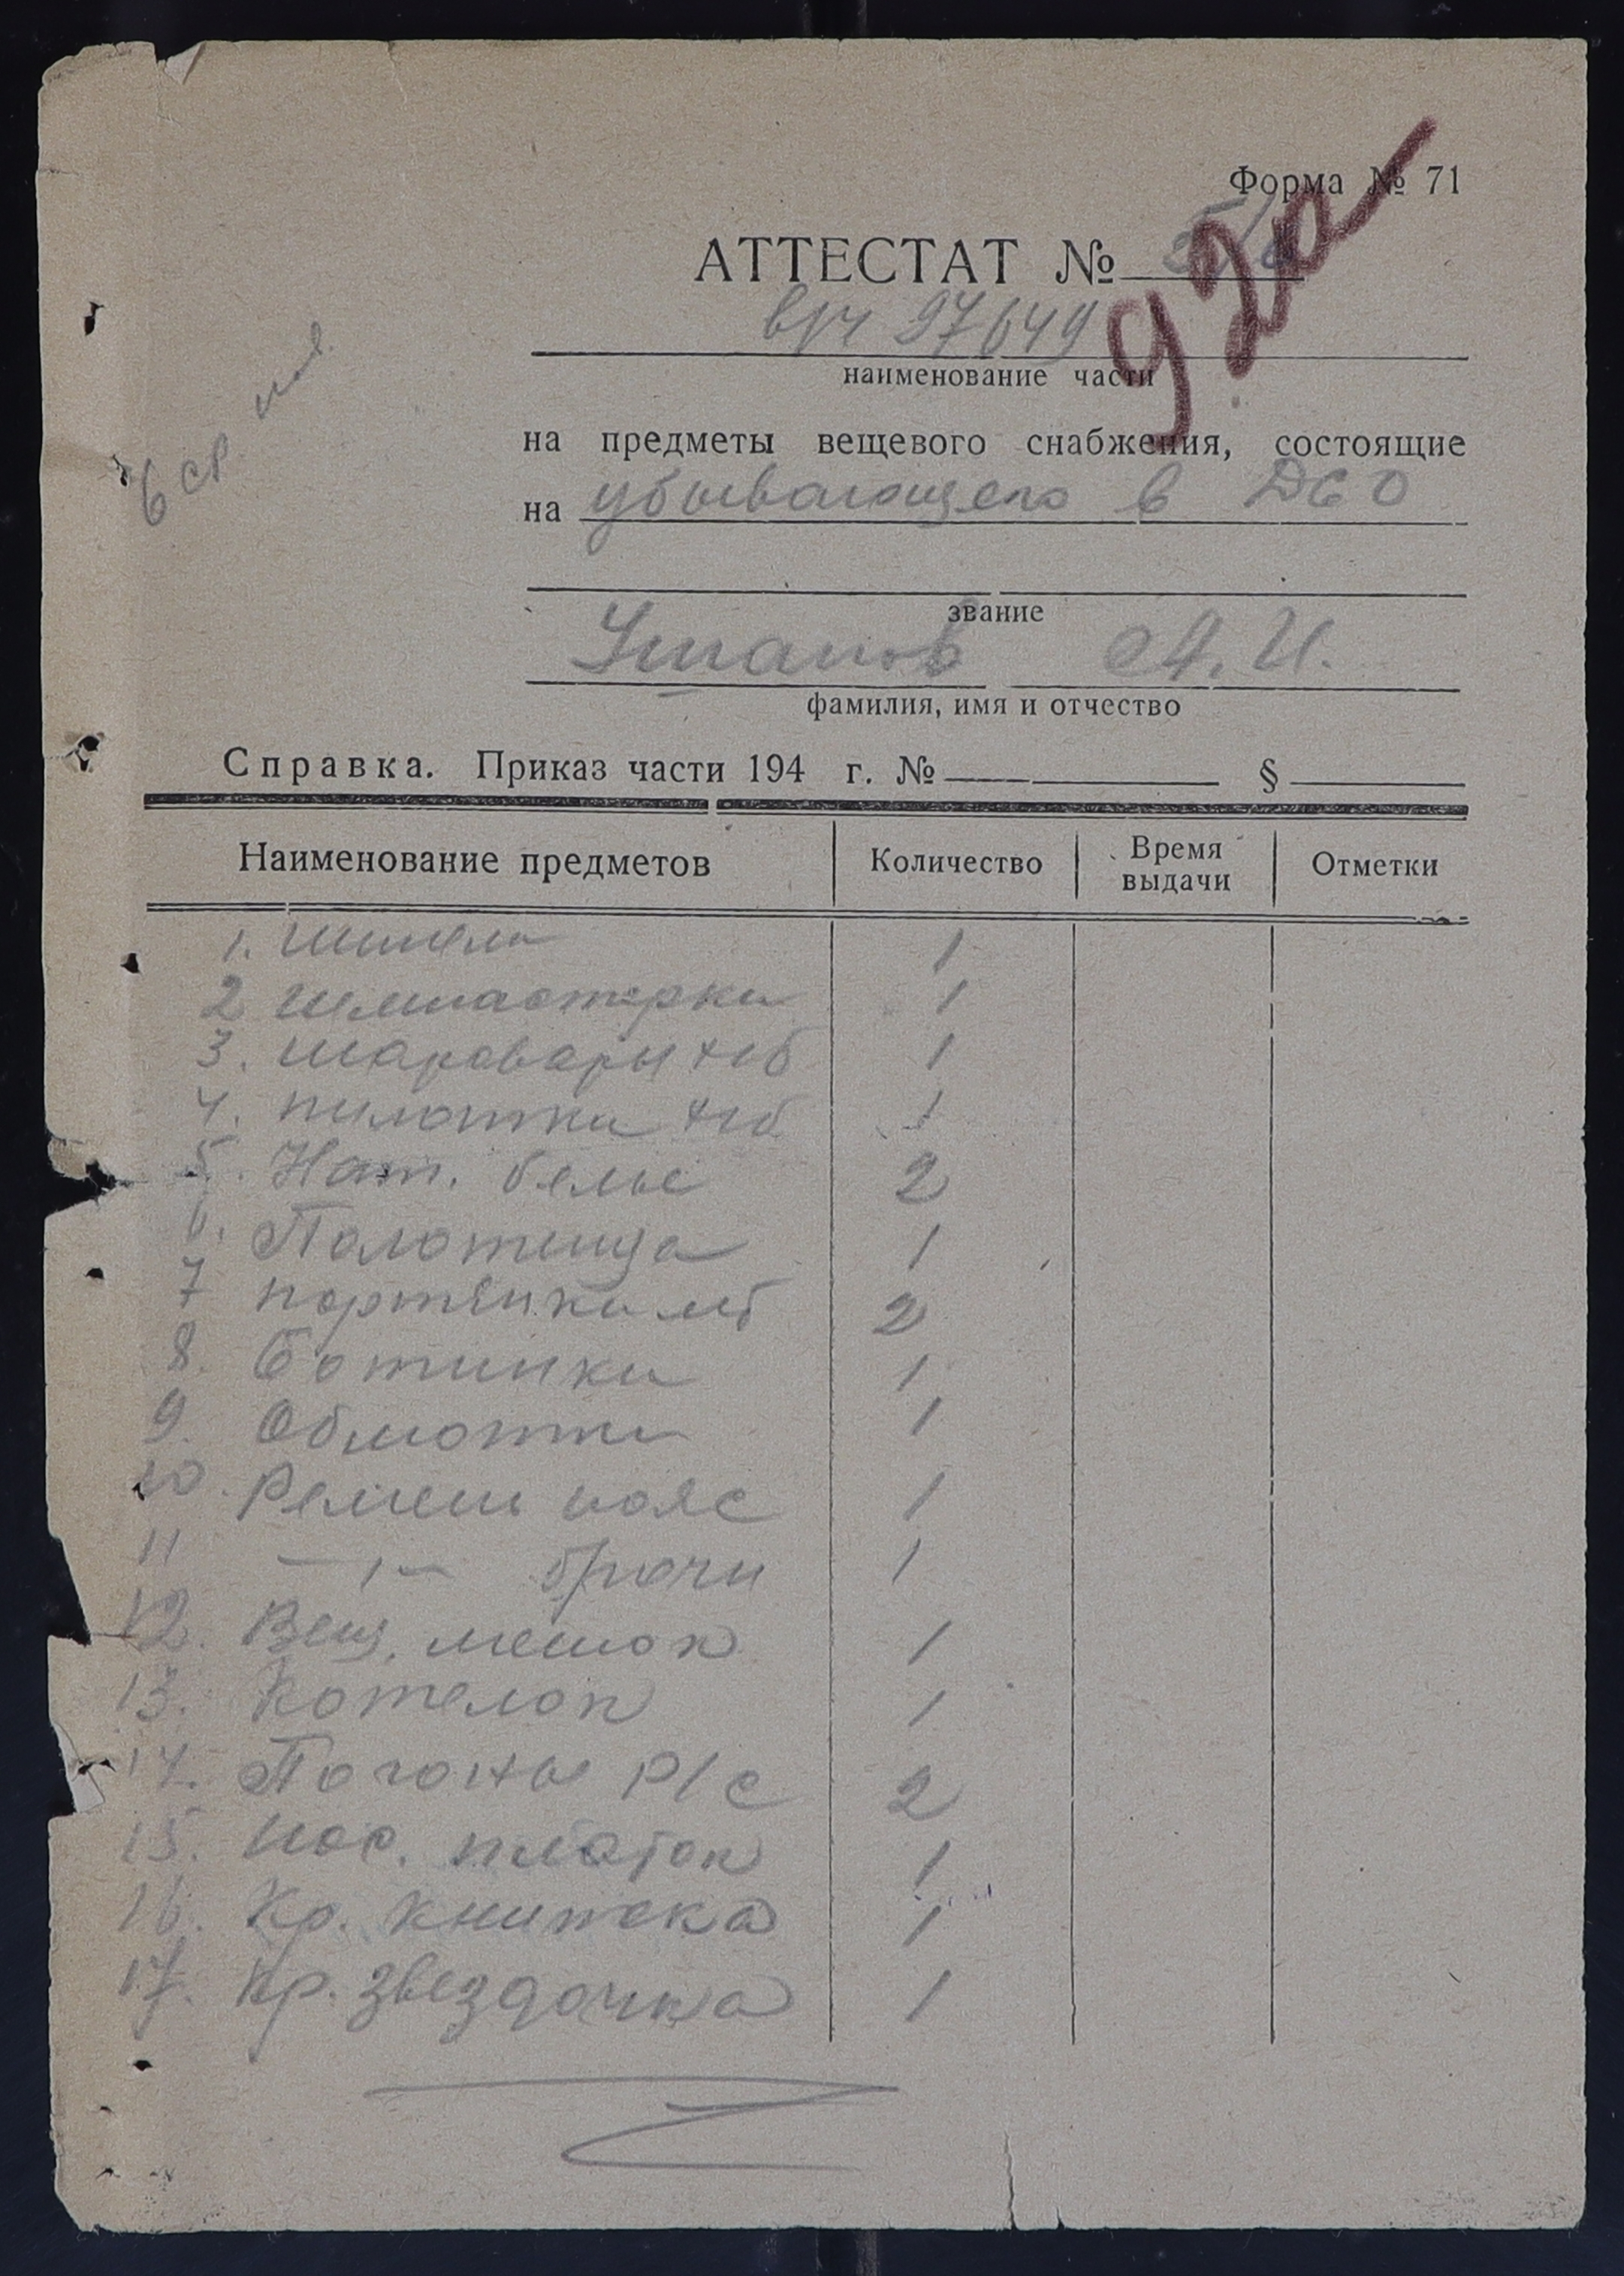 Форма № 71
АТТЕСТАТ №
92а
в/ч 97649
наименование части
на предметы вещевого снабжения, состоящие
на убывающего в
звание
А. И.
фамилия, имя и отчество
Справка. Приказ части 194 г. № §
Наименование предметов Количество Время выдачи Отметки
1. Шинель 1
2 Гимнастерки 1
3. Шаровары х/б 1
4. пилотки х/б 1
5. Нат. белье 2
6. Полотенца 1
7 портянки лет 2
8. Ботинки 1
9. Обмотки 1
10. Ремень пояс 1
11 —„— брючн 1
12. Вещ. мешок 1
13. Котелок 1
14. Погоны Р/С 2
15. Нос. платок 1
16. Кр. книжка 1
17. Кр. звездочка 1